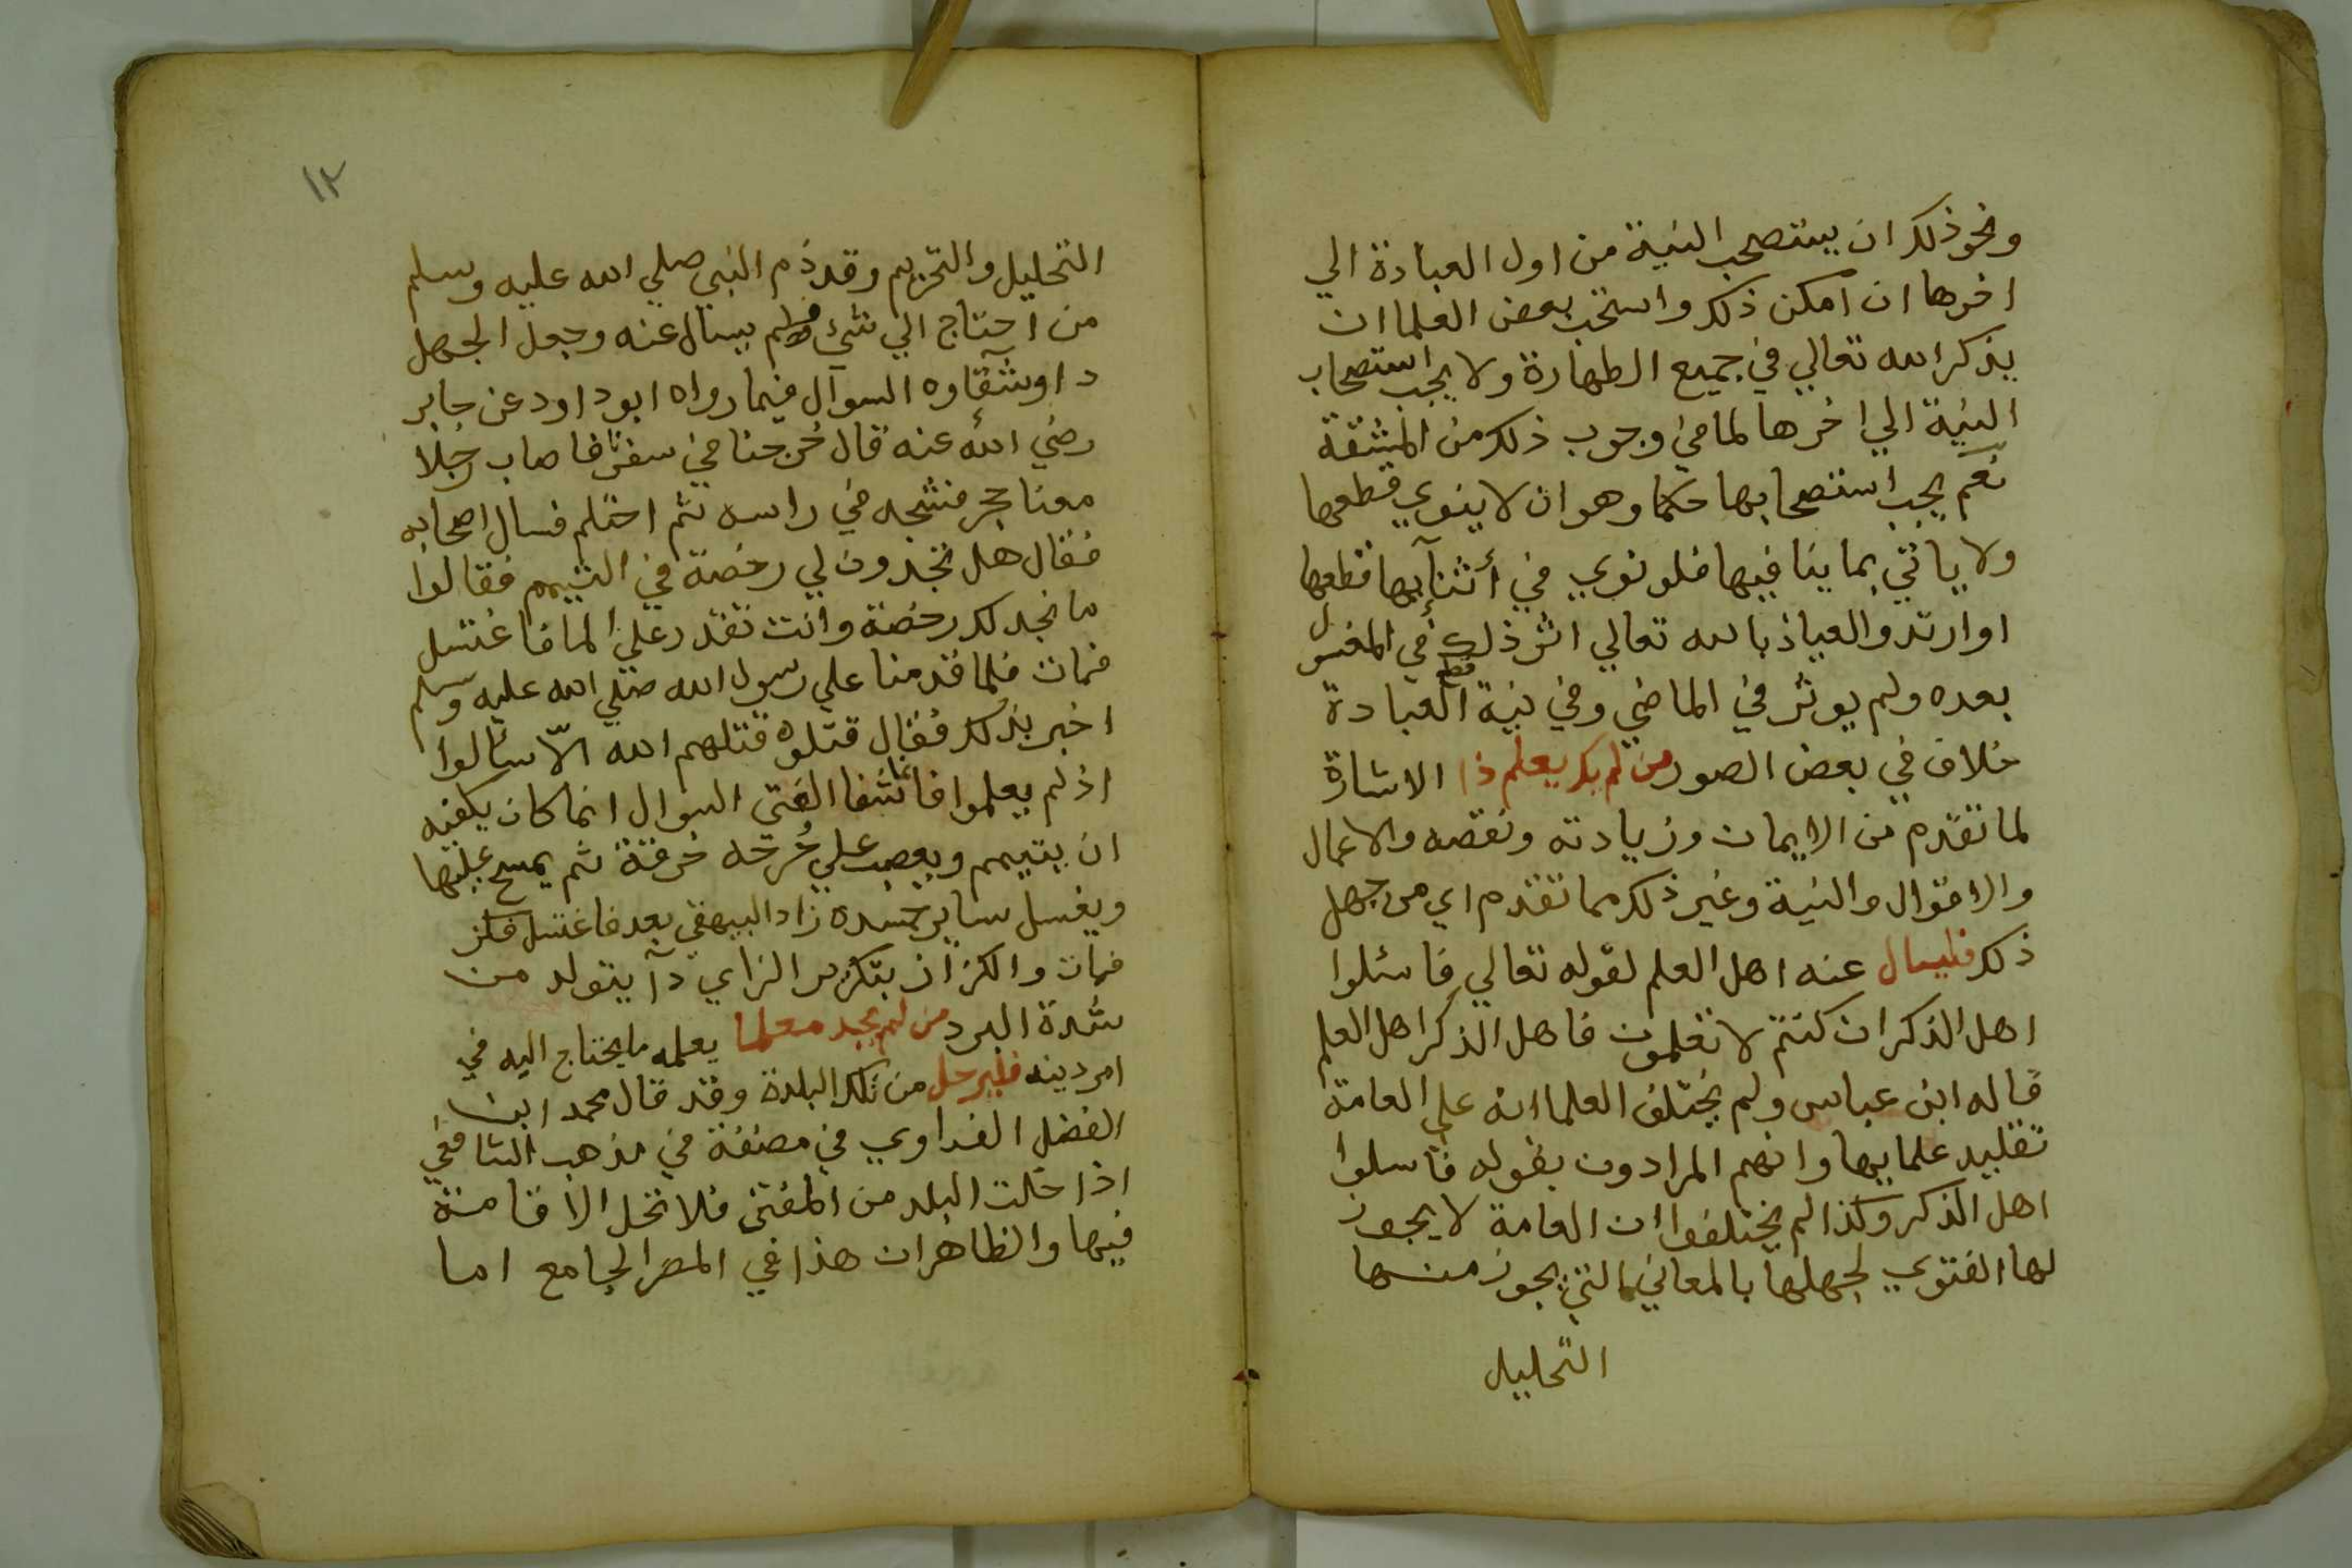 ونحو ذلك ان يستصحب النية من اول العبادة الي
اخرها ان امكن ذلك واستحب بعض العلما ان
يذكر الله تعالي في جميع الطهارة ولا يجب استصحاب
النية الي اخرها لما في وجوب ذلك من المشقة
نعم يجب استصحابها حكما وهو ان لا ينوي قطعها
ولا ياتي بما ينافيها فلو نوي في أثنآيها قطعها
او ارتد والعياذ بالله تعالي اثر ذلك في المغسول
بعده ولم يوثر في الماضي وفي نية قطع العبادة
خلاف في بعض الصور من لم يكن يعلم ذا الاشارة
لما تقدم من الايمان وزيادته ونقصه والاعمال
والاقوال والنية وغير ذلك مما تقدم اي من جهل
ذلك فليسال عنه اهل العلم لقوله تعالي فاسئلوا
اهل الذكر ان كنتم لا تعلمون فاهل الذكر اهل العلم
قاله ابن عباس ولم يختلف العلما انه علي العامة
تقليد علمايها وانهم المرادون بقوله فاسلوا
اهل الذكر وكذا لم يختلفوا ان العامة لا يجوز
لها الفتوي لجهلها بالمعاني التي يجوز منها
التحليل
١٢
التحليل والتحريم وقد ذم النبي صلي الله عليه وسلم
من احتاج الي شيئ فلم يسال عنه وجعل الجهل
دا وشقاوه السوآل فيما رواه ابو داود عن جابر
رضي الله عنه قال خرجنا في سفر فاصاب رجلا
معنا حجر فشجه في راسه ثم احتلم فسال اصحابه
فقال هل تجدون لي رخصة في التيمم فقالوا
ما نجد لك رخصة وانت تقدر علي الما فاغتسل
فمات فلما قدمنا علي رسول الله صلي الله عليه وسلم
اخبر بذلك فقال قتلوه قتلهم الله الاّ سالوا
اذ لم يعلموا فانما شفا العي السوال انما كان يكفيه
ان يتيمم ويعصب علي جُرحه خرقة ثم يمسح عليها
ويغسل ساير جسده زاد البيهقي بعد فاغتسل فكز
فمات والكزاز بتكرير الزاي دآ يتولد من
شدة البرد من لم يجد معلما يعلمه ما يحتاج اليه في
امر دينه فليرحل من تلك البلدة وقد قال محمد ابن
الفضل الفراوي في مصنفة في مذهب الشافعي
اذا خلت البلد من المفتي فلا تحل الاقامة
فيها والظاهر ان هذا في المصر الجامع اما